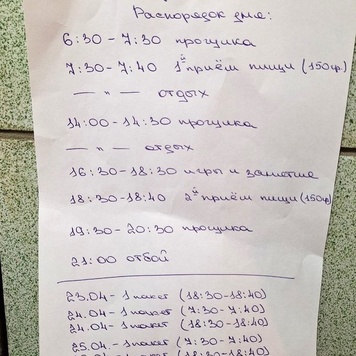 Распорядок дня:
6:30 - 7:30 прогулка
7:30 - 7:40 1й приём пищи (150гр)
— " — отдых
14:00 - 14:30 прогулка
— " — отдых
16:30 - 18:30 игры и занятие
18:30 - 18:40 2й приём пищи (150гр)
19:30 - 20:30 прогулка
21:00 отбой
23.04 - 1 пакет (18:30-18:40)
24.04 - 1 пакет (7:30-7:40)
24.04 - 1 пакет (18:30-18:40)
25.04 - 1 пакет (7:30-7:40)
(18:30-18:40)